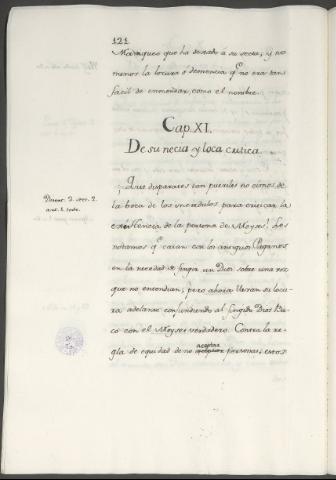 121
Maniqueo que ha dexado à su secta, y no
menos la locura ó demencia q.e no era tan
facil de enmendar, como el nombre.
Cap. XI.
De su necia y loca critica.
¡Que disparates tan pueriles no oimos de
Disert. 2. sec. 2.
la boca de los incredulos para criticar la
existencia de la persona de Moyses! Les
notamos q.e caian con los antiguos Paganos
en la necedad de fingir un Dios sobre una voz
que no entendian; pero ahora llevan su locu-
ra adelante confundiendo al fingido Dios Ba-
co con el Moyses verdadero. Contra la re-
gla de equidad de no aceptar personas, estos